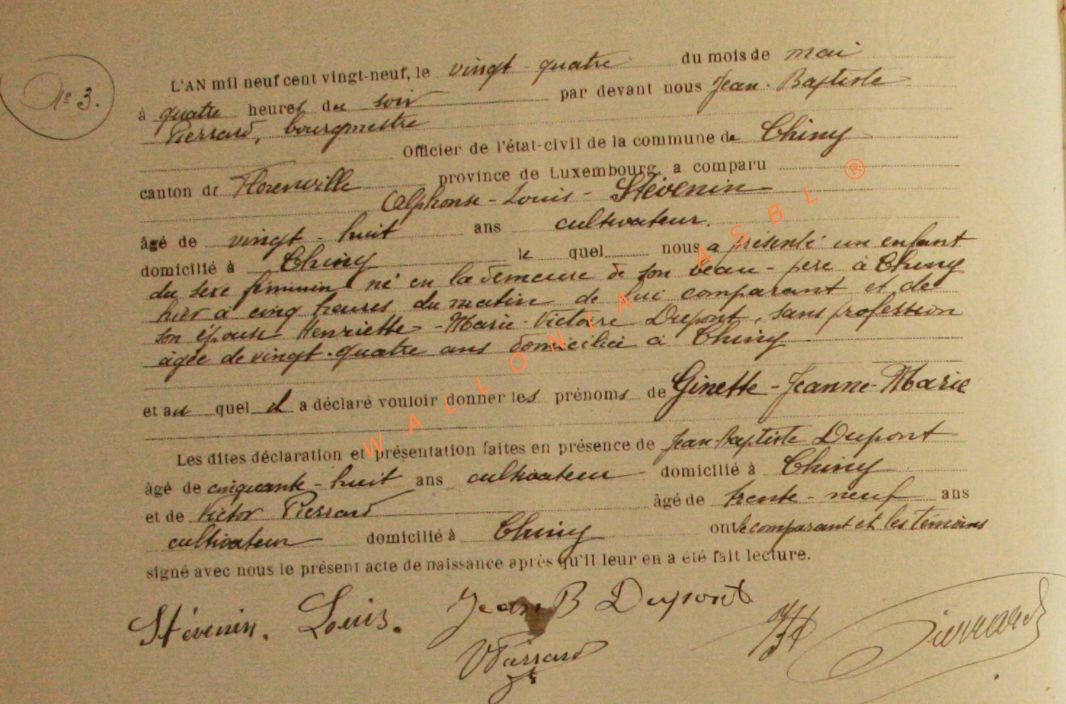 N° 3.
L'AN mil neuf cent vingt-neuf, le vingt-quatre du mois de mai
à quatre heures du soir par devant nous Jean-Baptiste
Pierrard, bourgmestre
Officier de l'état-civil de la commune de Chiny
canton de Florenville province de Luxembourg, a comparu
Alphonse-Louis-Stévenin
âgé de vingt-huit ans cultivateur.
domicilié à Chiny le quel nous a présenté un enfant
du sexe féminin né en la demeure de son beau-père à Chiny
hier à cinq heures du matin de lui comparant et de
son épouse Henriette-Marie-Victoire Dupont, sans profession
âgée de vingt-quatre ans domiciliée à Chiny
et au quel il a déclaré vouloir donner les prénoms de Ginette-Jeanne-Marie
Les dites déclaration et présentation faites en présence de Jean-Baptiste Dupont
âgé de cinquante-huit ans cultivateur domicilié à Chiny
et de Victor Pierrard âgé de trente-neuf ans
cultivateur domicilié à Chiny ont le comparant et les témoins
signé avec nous le présent acte de naissance après qu'il leur en a été fait lecture.
Stévenin. Louis. Jean B Dupont
V Pierrard Pierrard
WALLONIA ASBL ®